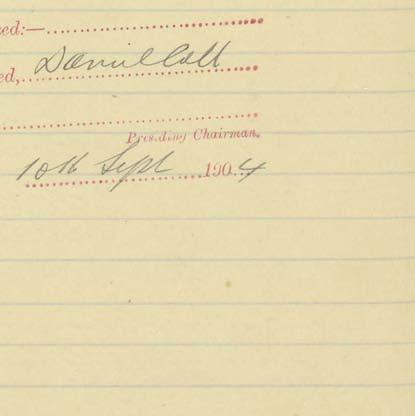 ed:—
ed, Daniel Call
Presiding Chairman.
10th Sept 1904